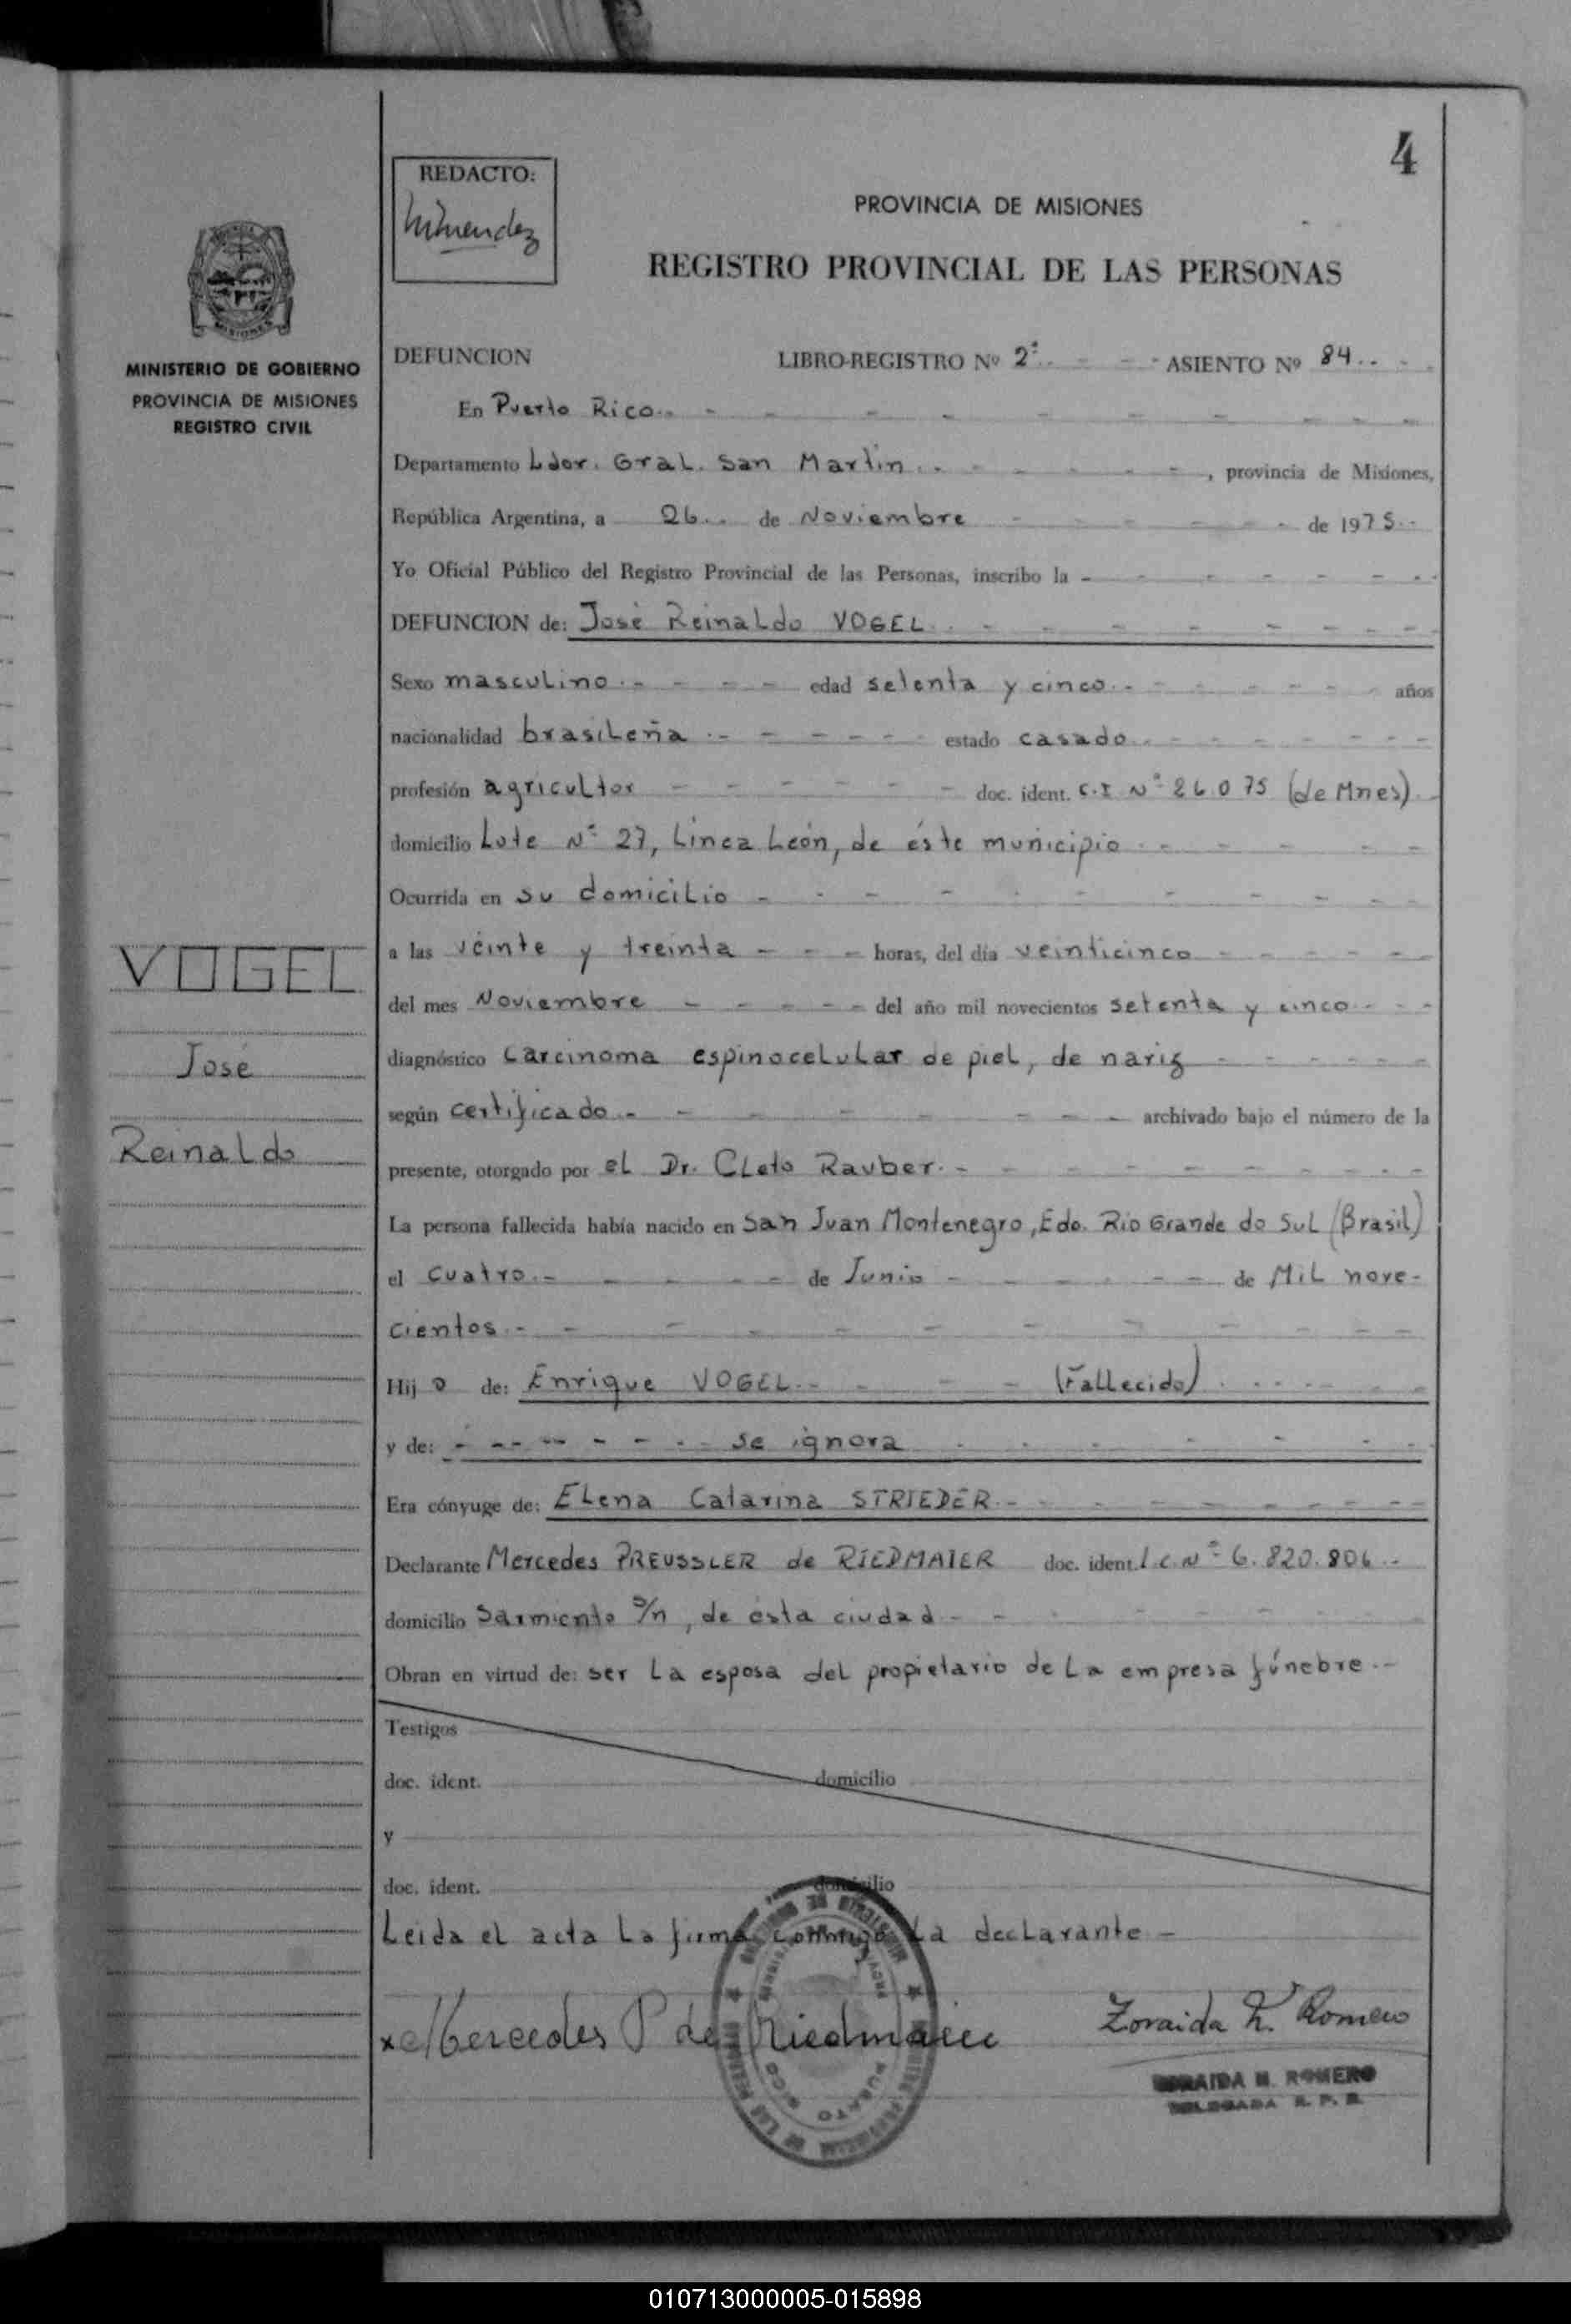 4
REDACTO:
PROVINCIA DE MISIONES
REGISTRO PROVINCIAL DE LAS PERSONAS
MISIONES
MINISTERIO DE GOBIERNO
PROVINCIA DE MISIONES
REGISTRO CIVIL
DEFUNCION LIBRO-REGISTRO Nº 2º ASIENTO Nº 84
En Puerto Rico
Departamento Ldor. Gral. San Martín , provincia de Misiones,
República Argentina, a 26 de Noviembre de 1975
Yo Oficial Público del Registro Provincial de las Personas, inscribo la
DEFUNCION de: José Reinaldo VOGEL
Sexo masculino edad setenta y cinco años
nacionalidad brasileña estado casado
profesión agricultor doc. ident. C.I Nº 26075 (de Mnes)
domicilio Lote Nº 27, Línea León, de éste municipio
Ocurrida en su domicilio
a las veinte y treinta horas, del día veinticinco
del mes Noviembre del año mil novecientos setenta y cinco
diagnóstico Carcinoma espinocelular de piel, de nariz
según certificado archivado bajo el número de la
presente, otorgado por el Dr. Cleto Rauber
La persona fallecida había nacido en San Juan Montenegro, Edo. Rio Grande do Sul (Brasil)
el cuatro de Junio de Mil nove-
cientos
Hij o de: Enrique VOGEL (Fallecido)
y de: se ignora
Era cónyuge de: Elena Catarina STRIEDER
Declarante Mercedes PREUSSLER de RIEDMAIER doc. ident. l.c. Nº 6.820.806
domicilio Sarmiento s/n, de ésta ciudad
Obran en virtud de: ser la esposa del propietario de la empresa fúnebre
Testigos
doc. ident. domicilio
y
doc. ident. domicilio
Leida el acta la firma conmigo la declarante
x Mercedes P de Riedmaier Zoraida N. Romero
ZORAIDA N. ROMERO
DELEGADA R. P. P.
VOGEL
José
Reinaldo
010713000005-015898